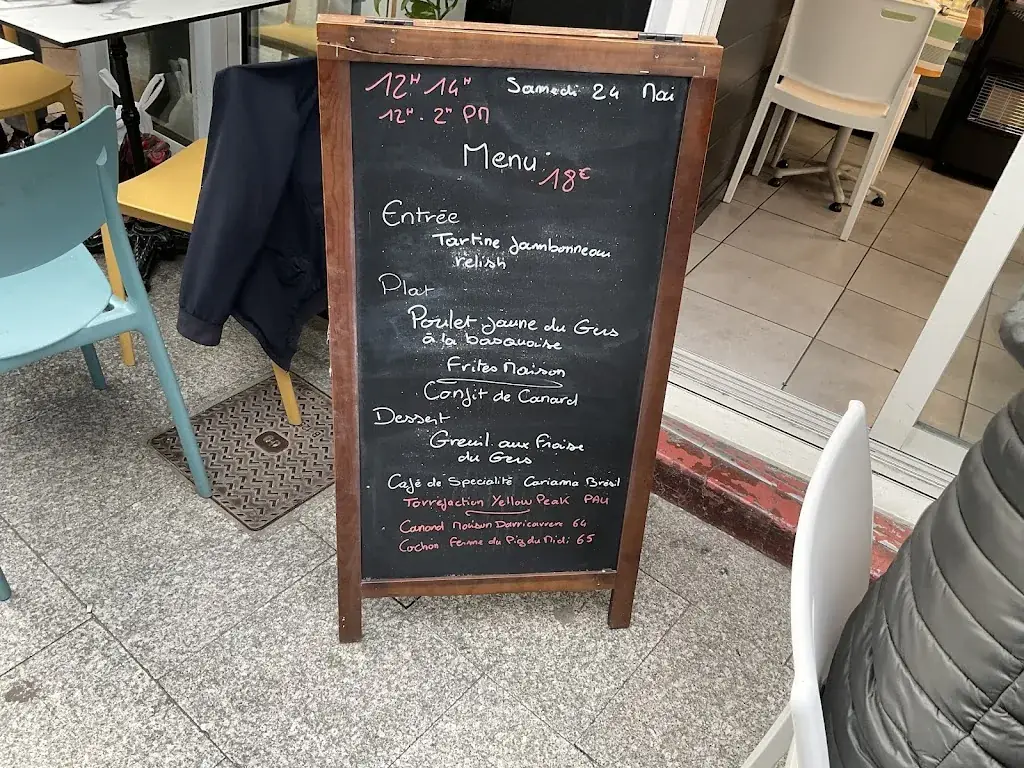 12H 14H Samedi 24 Mai
12H - 2H PM
Menu:
18€
Entrée
Tartine Jambonneau
relish
Plat
Poulet jaune du Gers
à la basquaise
Frites Maison
Confit de Canard
Dessert
Greuil aux Fraise
du Gers
Café de Specialité Cariama Brésil
Torrefaction Yellow Peak PAU
Canard Maison Darricarrere 64
Cochon Ferme du Pic du Midi 65